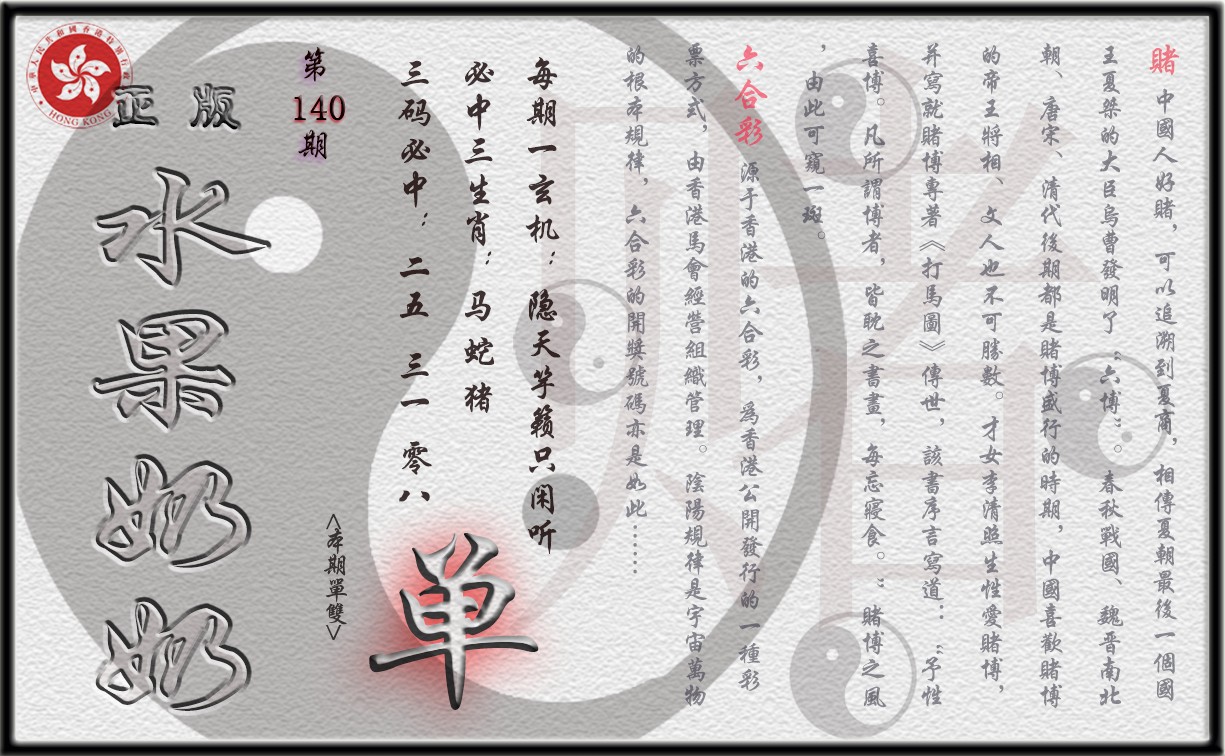 賭 中國人好賭，可以追溯到夏商，相傳夏朝最後一個國
王夏桀的大臣烏曹發明了“六博”。春秋戰國、魏晋南北
朝、唐宋、清代後期都是賭博盛行的時期，中國喜歡賭博
的帝王將相、文人也不可勝數。才女李清照生性愛賭博，
并寫就賭博專著《打馬圖》傳世，該書序言寫道：“予性
喜博。凡所謂博者，皆耽之書畫，每忘寢食。”賭博之風
，由此可窺一斑。
六合彩 源于香港的六合彩，爲香港公開發行的一種彩
票方式，由香港馬會經營組織管理。陰陽規律是宇宙萬物
的根本規律，六合彩的開獎號碼亦是如此……
每期一玄机：隐天竽籁只闲听
必中三生肖：马蛇猪
三码必中：二五 三一 零八
单
<本期單雙>
第
140
期
正版
水果奶奶
中華人民共和國香港特別行政區
HONG KONG
賭